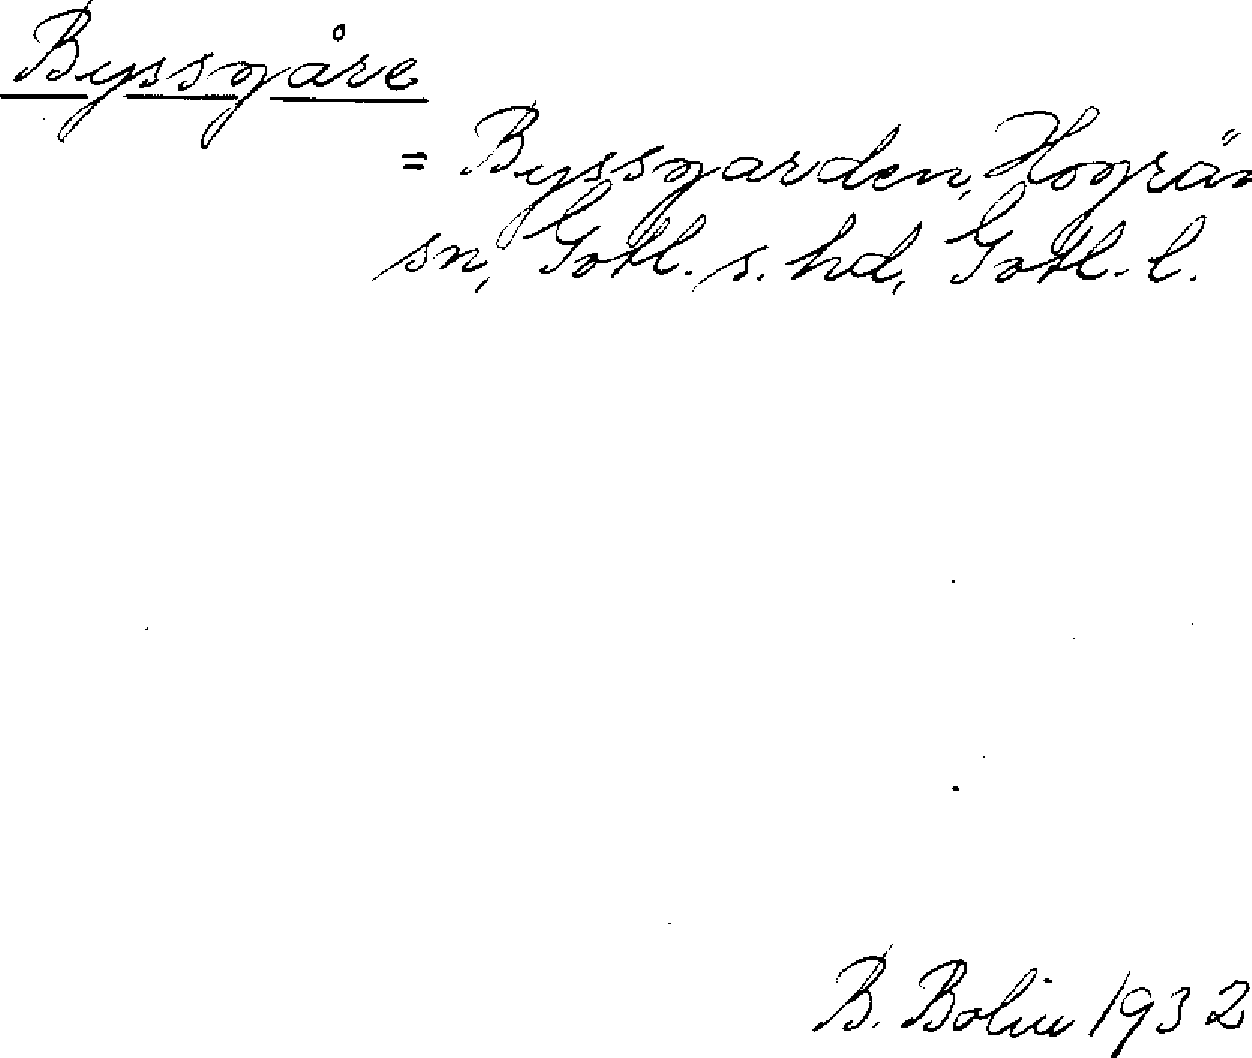 Byssgåre
= Byssgarden, Hogrän
sn, Gotl. s. hd, Gotl. l.
B. Bolin 1932